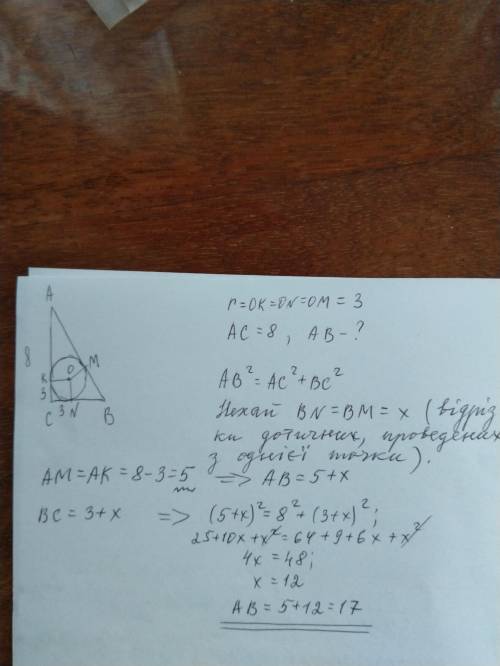 r=OK=ON=OM=3
AC=8, AB-?
AB²=AC²+BC²
Нехай BN=BM=x (відріз
ки дотичних, проведених
з однієї точки).
AM=AK=8-3=5 => AB=5+x
BC=3+x => (5+x)²=8²+(3+x)²;
25+10x+x²=64+9+6x+x²
4x=48;
x=12
AB=5+12=17
A
8
O
M
K
3
C
3
N
B